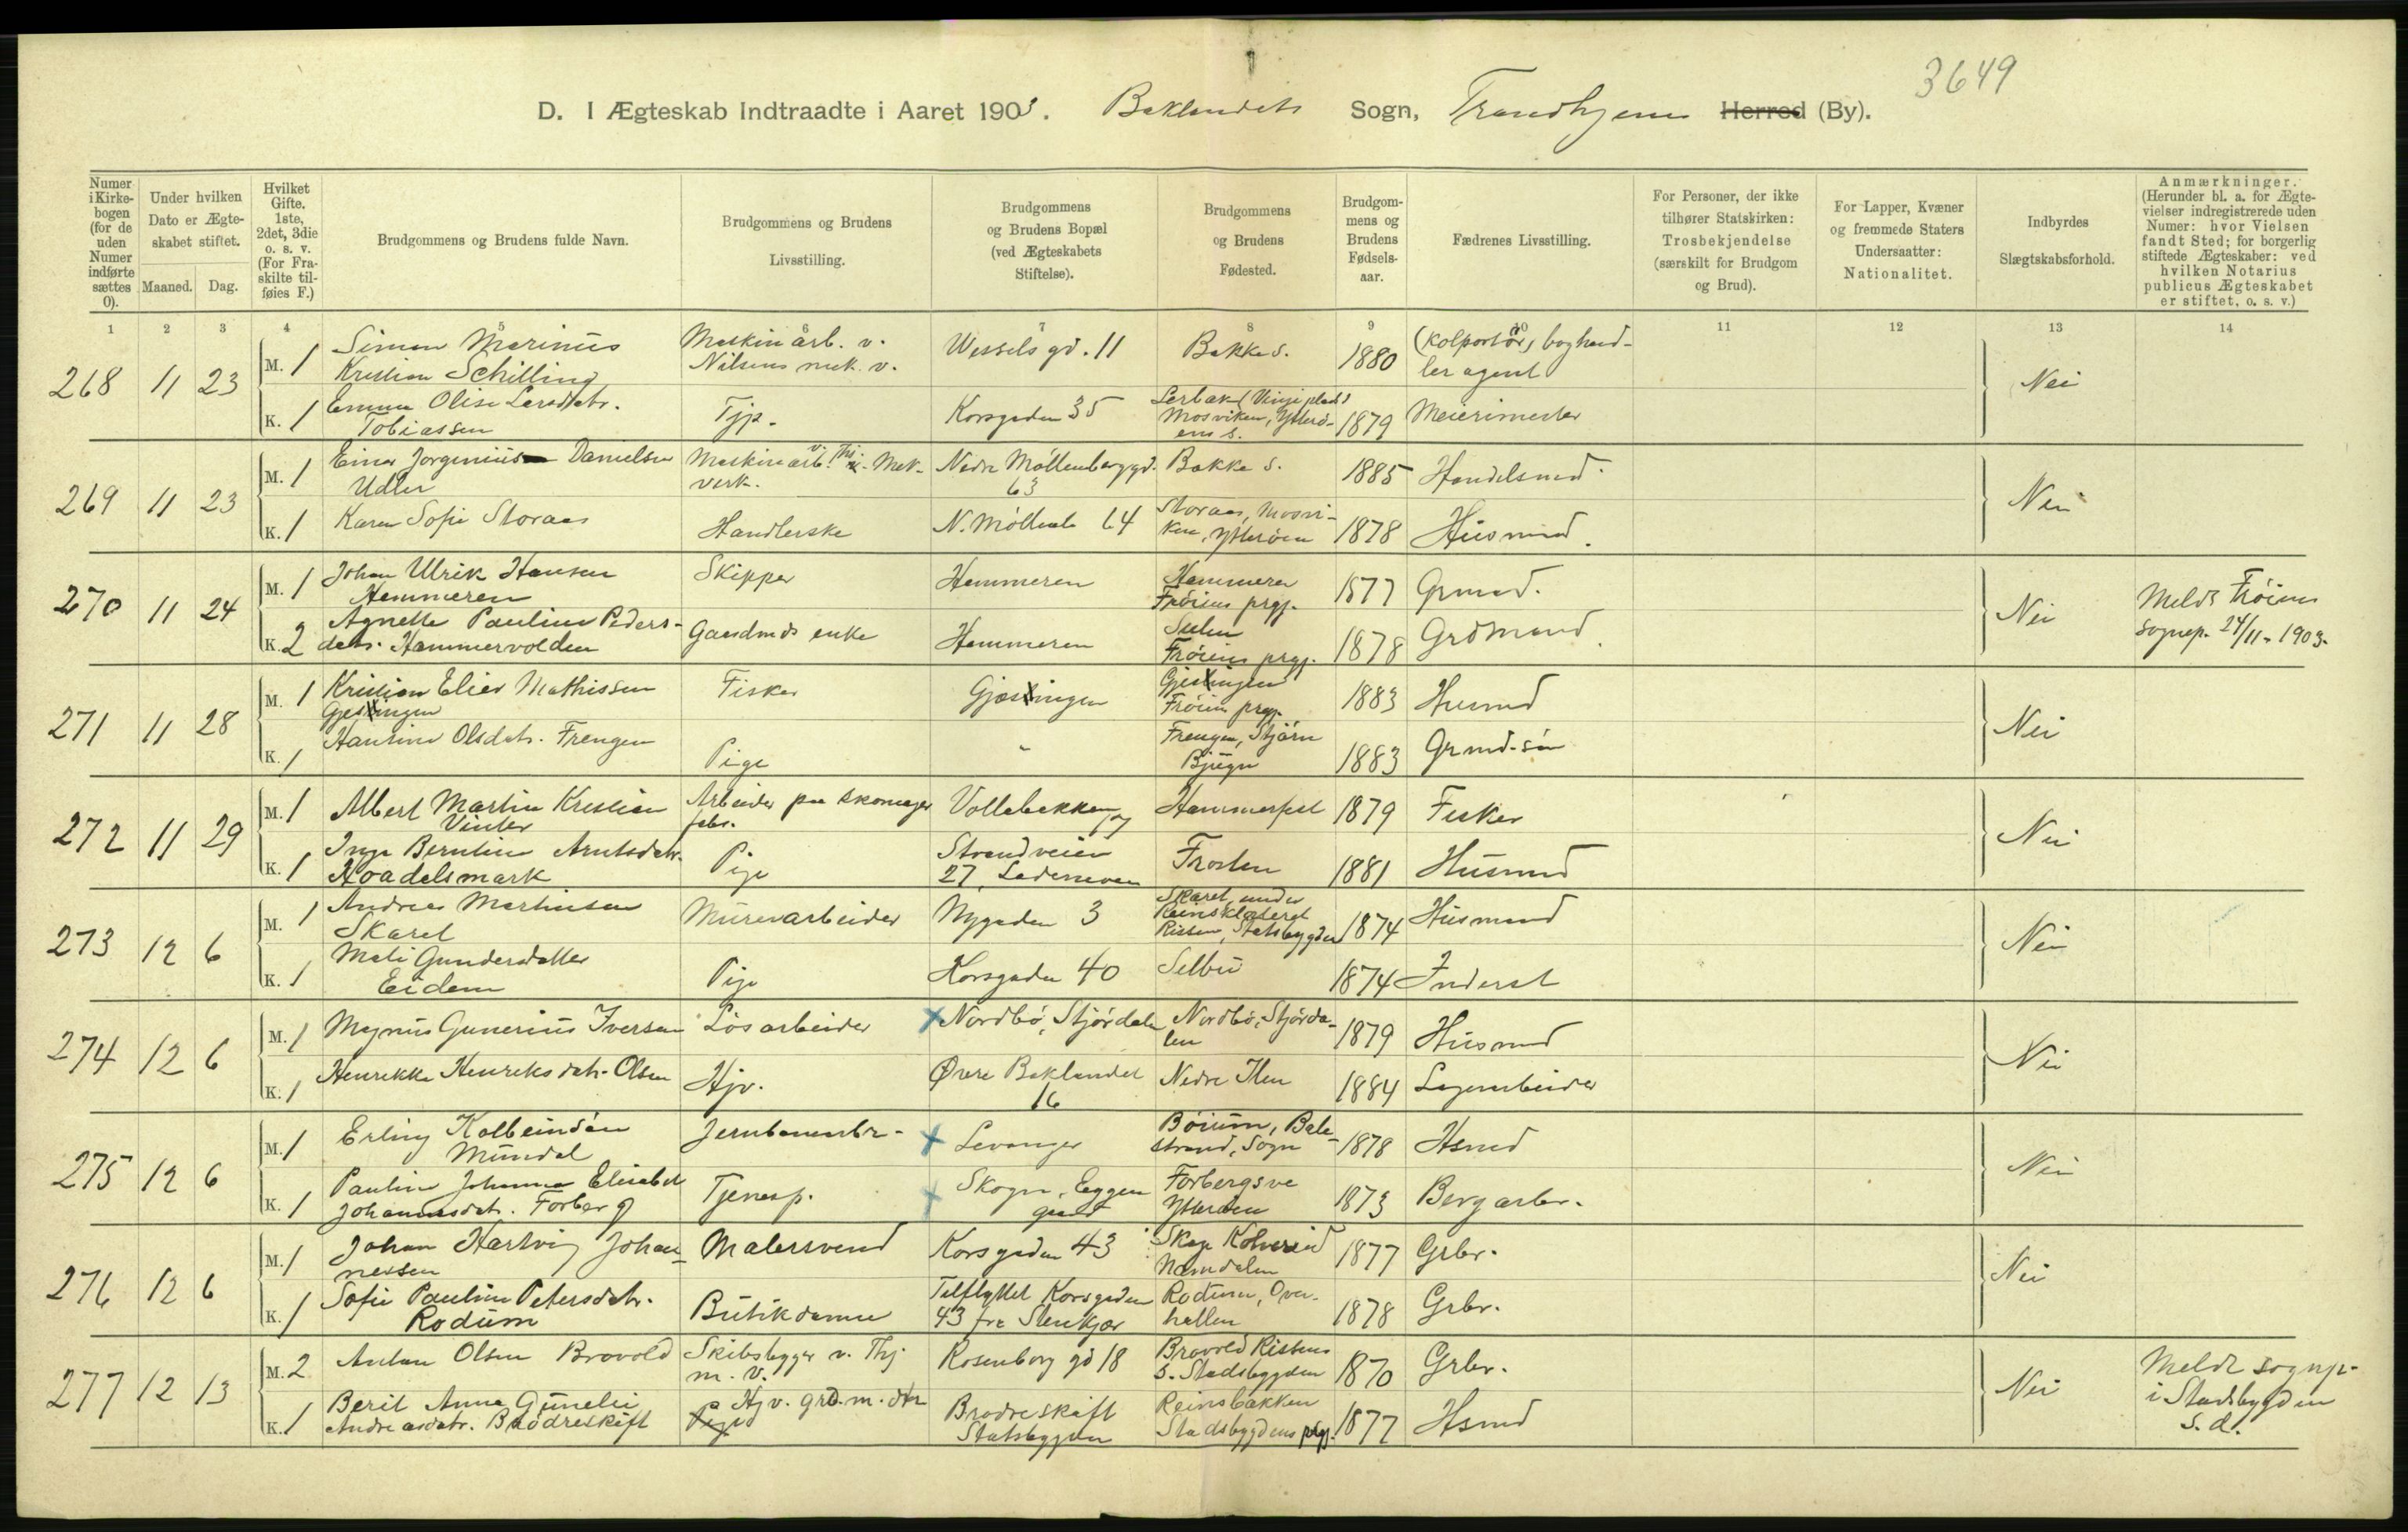 3649
D. I Ægteskab Indtraadte i Aaret 1903. Baklandets Sogn, Trondhjem Herred (By).
Numer i Kirkebogen (for de uden Numer indførte sættes 0).
Under hvilken Dato er Ægteskabet stiftet.
Maaned. Dag.
Hvilket Gifte. 1ste, 2det, 3die o. s. v. (For Fraskilte tilføies F.)
Brudgommens og Brudens fulde Navn.
Brudgommens og Brudens Livsstilling.
Brudgommens og Brudens Bopæl (ved Ægteskabets Stiftelse).
Brudgommens og Brudens Fødested.
Brudgommens og Brudens Fødselsaar.
Fædrenes Livsstilling.
For Personer, der ikke tilhører Statskirken: Trosbekjendelse (særskilt for Brudgom og Brud).
For Lapper, Kvæner og fremmede Staters Undersaatter: Nationalitet.
Indbyrdes Slægtskabsforhold.
Anmærkninger. (Herunder bl. a. for Ægtevielser indregistrerede uden Numer: hvor Vielsen fandt Sted; for borgerlig stiftede Ægteskaber: ved hvilken Notarius publicus Ægteskabet er stiftet, o. s. v.)
1 2 3 4 5 6 7 8 9 10 11 12 13 14
268 11 23 M. 1 Simon Marinus Kristian Schilling Maskinarb. v. Nilsens mek. v. Wessels gd. 11 Bakke s. 1880 (Kolportør, boghandler agent Nei
K. 1 Emma Olise Larsdatr. Tobiassen Tjp. Korsgaden 35 Mosviken, Ytterøens s. 1879 Meierimester
269 11 23 M. 1 Einar Jorginius Danielsen Udler Maskinarb. v. Thj. Mek. verk. Nedre Møllenberggd. 63 Bakke s. 1885 Handelsmd. Nei
K. 1 Karen Sofie Storaas Handlerske N. Møllenb 64 Storaas, Mosviken, Ytterøen 1878 Husmd.
270 11 24 M. 1 Johan Ulrik Hansen Hammeren Skipper Hammeren Hammeren Frøiens prgj. 1877 Grmd. Nei Meldt Frøiens sognep. 24/11-1903.
K. 2 Agnette Pauline Pedersdatr. Hammervolden Gaardmds enke Hammeren Frøiens prgj. 1878 Grdmand.
271 11 28 M. 1 Kristian Elier Mathissen Gjesingen Fisker Gjæsingen Gjesingen Frøiens prgj. 1883 Husmd Nei
K. 1 Hansine Olsdatr. Frengen Pige " Frengen, Stjørn Bjugn 1883 Grmd.søn
272 11 29 M. 1 Albert Martin Kristian Vinter Arbeider paa skomager fabr. Vollabakken 17 Hammerfest 1879 Fisker Nei
K. 1 Inga Berntine Arntsdatr. Hoadelsmark Pige Strandveien 27, Lademoen Frosten 1881 Husmd
273 12 6 M. 1 Andreas Martinsen Skaret Murerarbeider Nygaden 3 Skaret under Reinsklosteret Rissen, Statsbygden 1874 Husmand Nei
K. 1 Mali Gundersdatter Eidem Pige Korsgaden 40 Selbu 1874 Inderst
274 12 6 M. 1 Magnus Gunerius Iversen Løsarbeider Nordbø, Stjørdalen Nordbø, Stjørdalen 1879 Husmd Nei
K. 1 Henrikke Henriksdatr. Olsen Hjv. Øvre Baklandet 16 Nedre Ilen 1884 Lagerarbeider
275 12 6 M. 1 Erling Kolbeinsøn Mundal Jernbanearbr. Levanger Børium, Balestrand, Sogn 1878 Hsmd Nei
K. 1 Pauline Johanna Elisabet Johannesdatr. Forberg Tjenesp. Skogn, Eggen gaard Forbergsve Ytterøen 1873 Bergarbr.
276 12 6 M. 1 Johan Hartvig Johannessen Malersvend Korsgaden 43 Skage Kolvereid Namdalen 1877 Grbr. Nei
K. 1 Sofie Pauline Petersdatr. Rodum Butikdame Tilflyttet Korsgaden 43 fra Stenkjær Rodum, Overhallen 1878 Grbr.
277 12 13 M. 2 Anton Olsen Brovold Skibsbygger v. Thj. m. v. Rosenborg gd 18 Brovold Rissens s. Stadsbygden 1870 Grbr. Nei Meldt sognep. i Stadsbygden s. d.
K. 1 Berit Anna Gunelie Andreasdatr. Brødreskift Hjv. grd.m. dtr Brødreskift Statsbygden Reinsbakken Stadsbygdens prgj. 1877 Hsmd